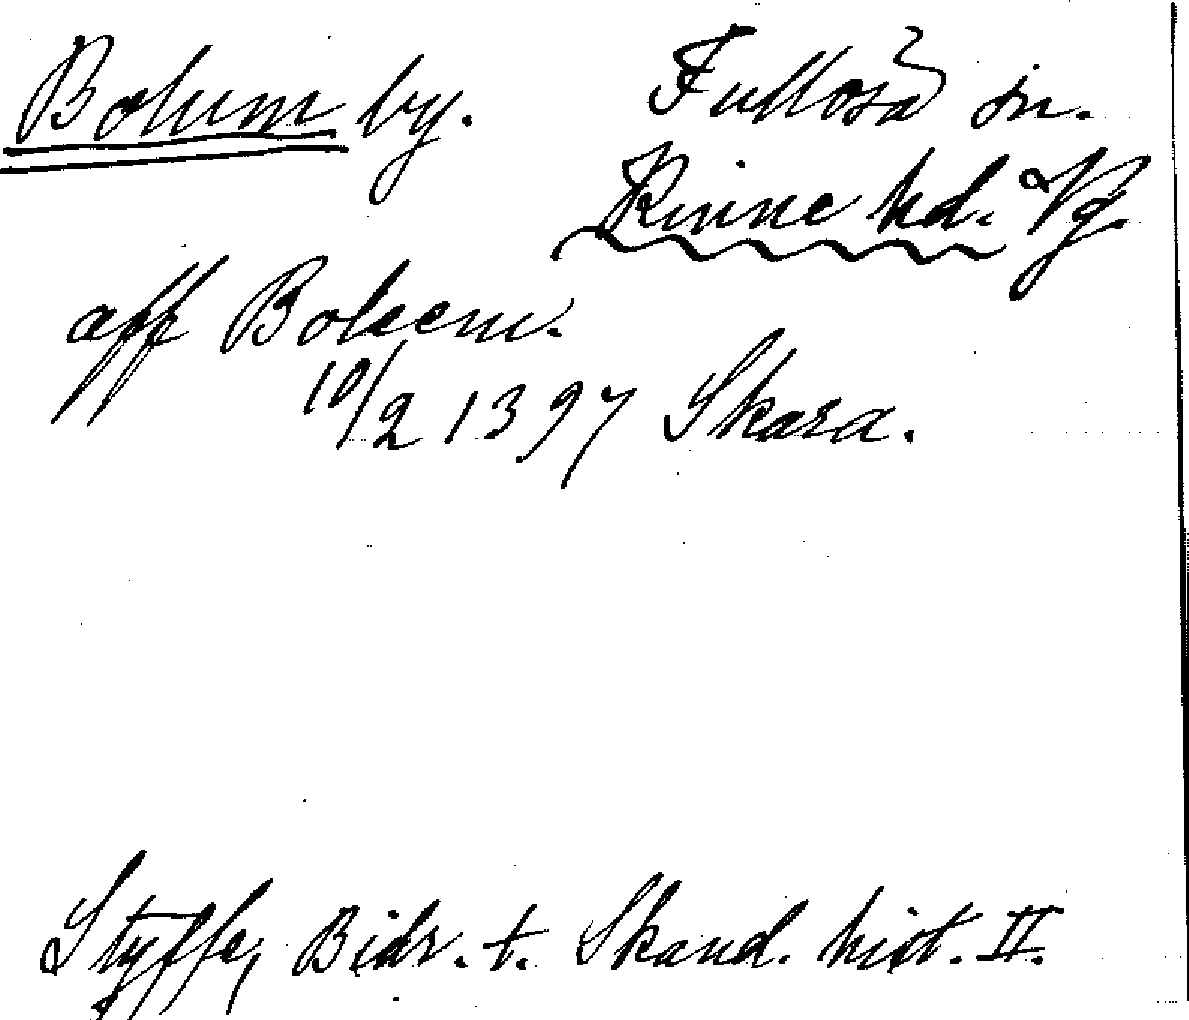 Bolum by. Fullösa sn.
Kinne hd. Vg.
aff Boleem.
10/2 1397 Skara.
Styffe, Bidr. t. Skand. hist. II.